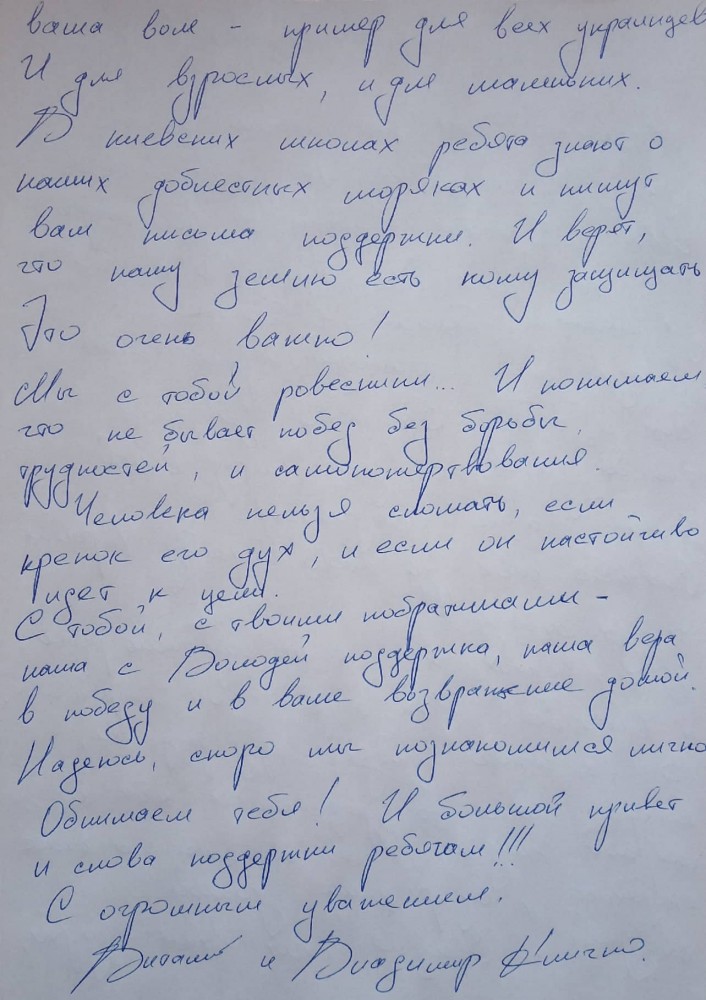 ваша воля - пример для всех украинцев
И для взрослых, и для маленьких.
В киевских школах ребята знают о
наших доблестных моряках и пишут
вам письма поддержки. И верят,
что нашу землю есть кому защищать
Это очень важно!
Мы с тобой ровесники... И понимаем,
что не бывает побед без борьбы,
трудностей, и самопожертвования.
Человека нельзя сломать, если
крепок его дух, и если он настойчиво
идет к цели.
С тобой, с твоими побратимами -
наша с Володей поддержка, наша вера
в победу и в ваше возвращение домой.
Надеюсь, скоро мы познакомимся лично
Обнимаем тебя! И большой привет
и слова поддержки ребятам!!!
С огромным уважением,
Виталий и Владимир Кличко.